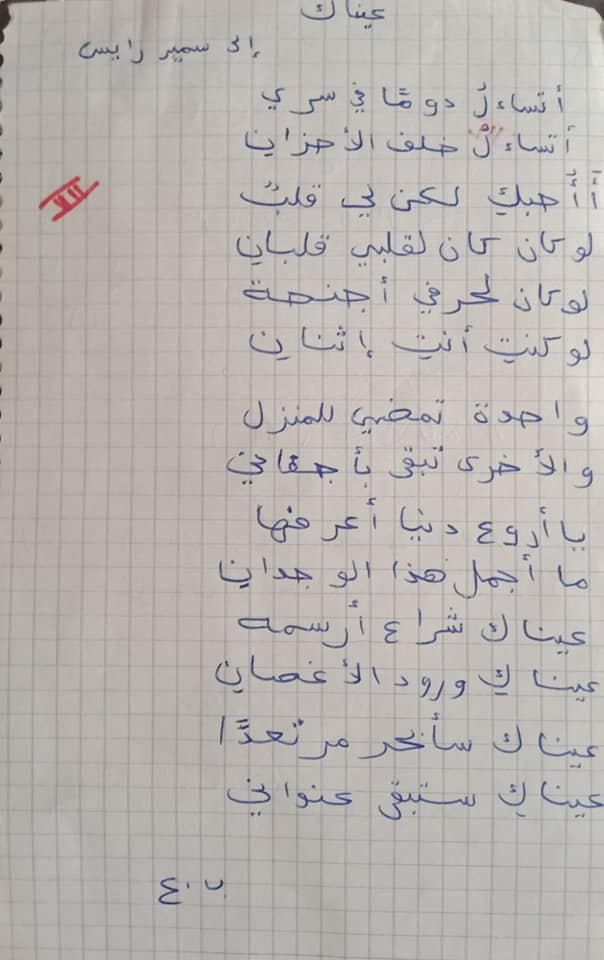 عيناك
إلى سمير رايس
أتساءلُ دومًا في سري
أتساءلُ خلف الأحزانِ
أَأُحبكِ لكن لي قلبٌ
لو كان كان لقلبي قلبانِ
لو كان لحرفي أجنحة
لو كنتِ أنتِ إثنانِ
واحدة تمضي للمنزل
والأخرى تبقى بأجفاني
يا أروع دنيا أعرفها
ما أجمل هذا الوجدانِ
عيناك شراع أرسمه
عيناكِ ورود الأغصانِ
عيناك سأبحر مرتعدًا
عيناكِ ستبقى عنواني
ب.ع